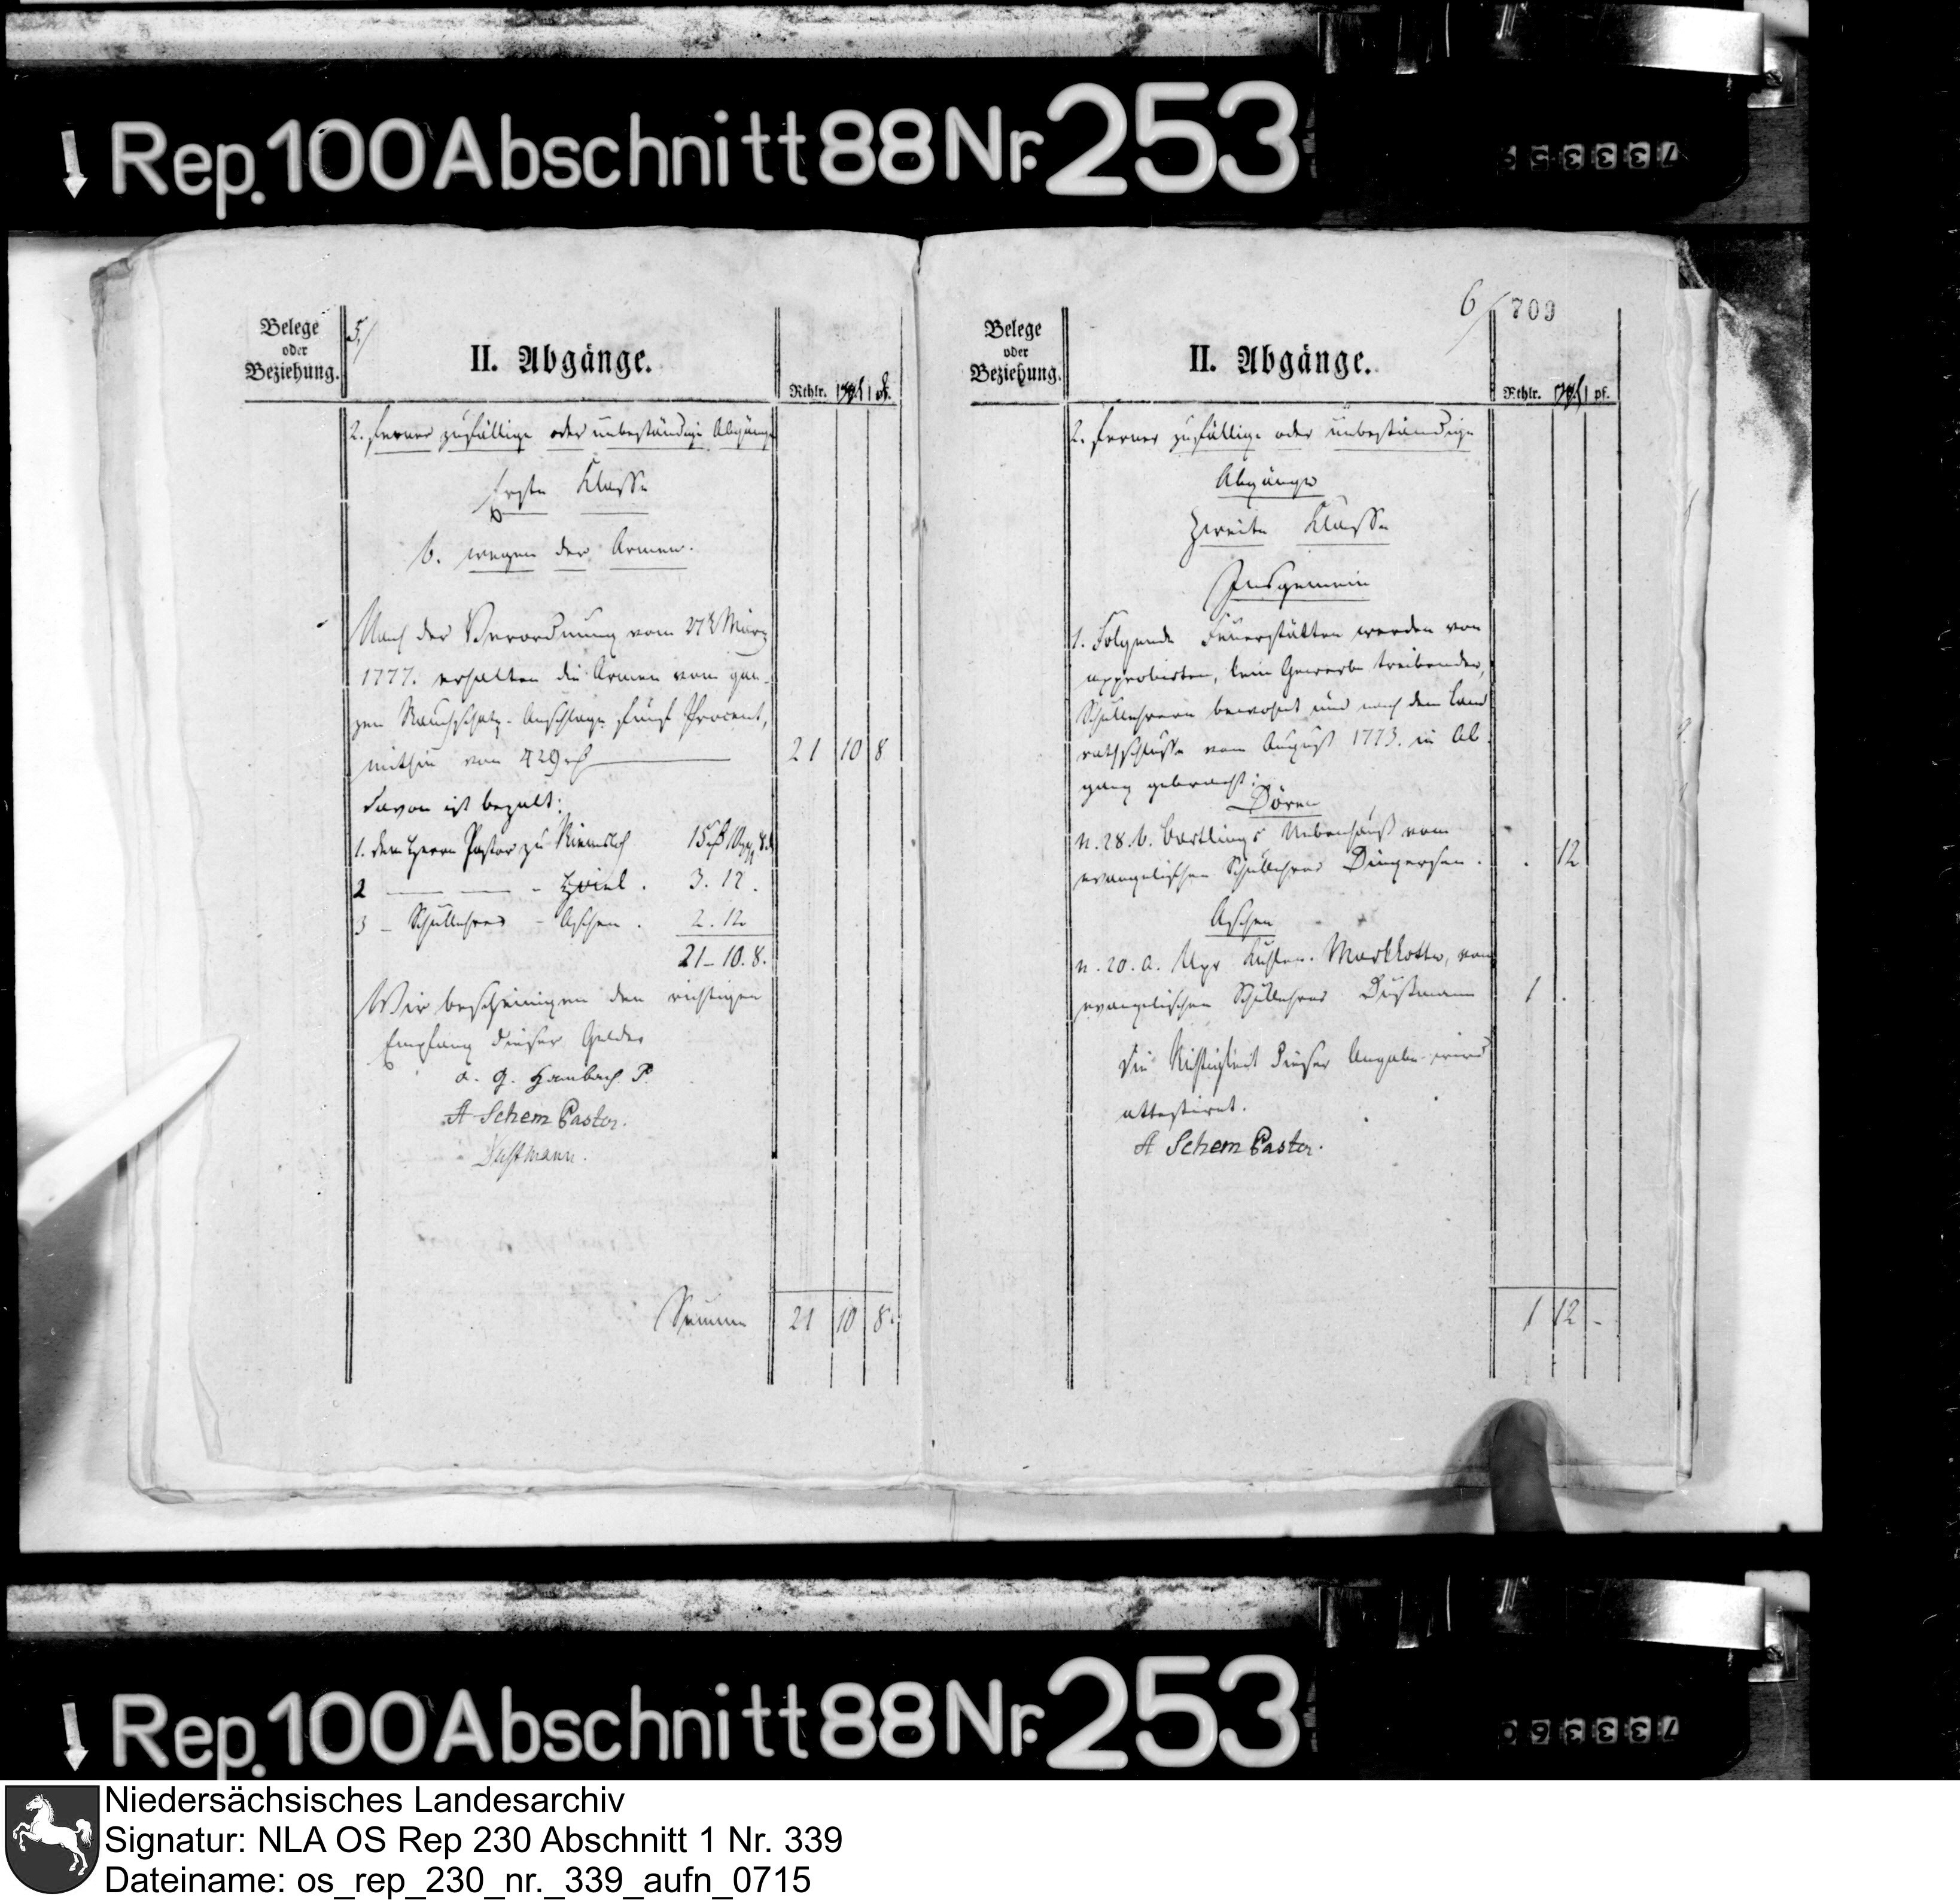 Rep. 100 Abschnitt 88 Nr. 253
Belege
oder
Beziehung.
5./
II. Abgänge.
Rthlr. pf.
2. ferner zufällige oder unbeständige Abgänge
Erste Klasse
b. wegen der Armen.
Nach der Verordnung vom März
1777. erhalten die Armen vom gan-
zen Rauchschatz-Anschlage fünf Procent,
mithin von 429 21 10 8
davon ist bezalt:
1. dem Herrn Pastor zu Riemsloh 15
2 — — - Hoiel. 3. 12.
3 - Schullehrer - Aschen. 2. 12
21-10.8.
Wir bescheinigen den richtigen
Empfang dieser Gelder
A Schem Pastor.
Dustmann.
Summe 21 10 8.
6/ 709
Belege
oder
Beziehung.
II. Abgänge.
Rthlr. pf.
2. ferner zufällige oder unbeständige
Abgänge
Zweite Klasse
Insgemein
1. Folgende Feuerstätten werden von
approbirten, kein Gewerbe treibenden,
Schullehrern bewohnt und nach dem Land
rathsschlusse vom August 1773. in Ab-
gang gebracht:
Dören
n. 28. b. Bartlings Nebenhauß vom
evangelischen Schullehrer Dingersen. . 12
Aschen
n. 20. a. Markkotte, vom
evangelischen Schullehrer Dustmann 1 .
Die Richtigkeit dieser Angabe wird
attestirt.
A Schem Pastor.
1 12 -
Rep. 100 Abschnitt 88 Nr. 253
Niedersächsisches Landesarchiv
Signatur: NLA OS Rep 230 Abschnitt 1 Nr. 339
Dateiname: os_rep_230_nr._339_aufn_0715